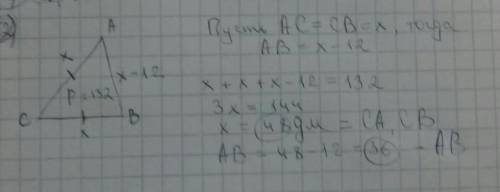 2)
A
x
x-12
P=132
C
x
B
Пусть AC=CB=x, тогда
AB=x-12
x+x+x-12=132
3x=144
x=48дм=CA,CB
AB=48-12=36-AB